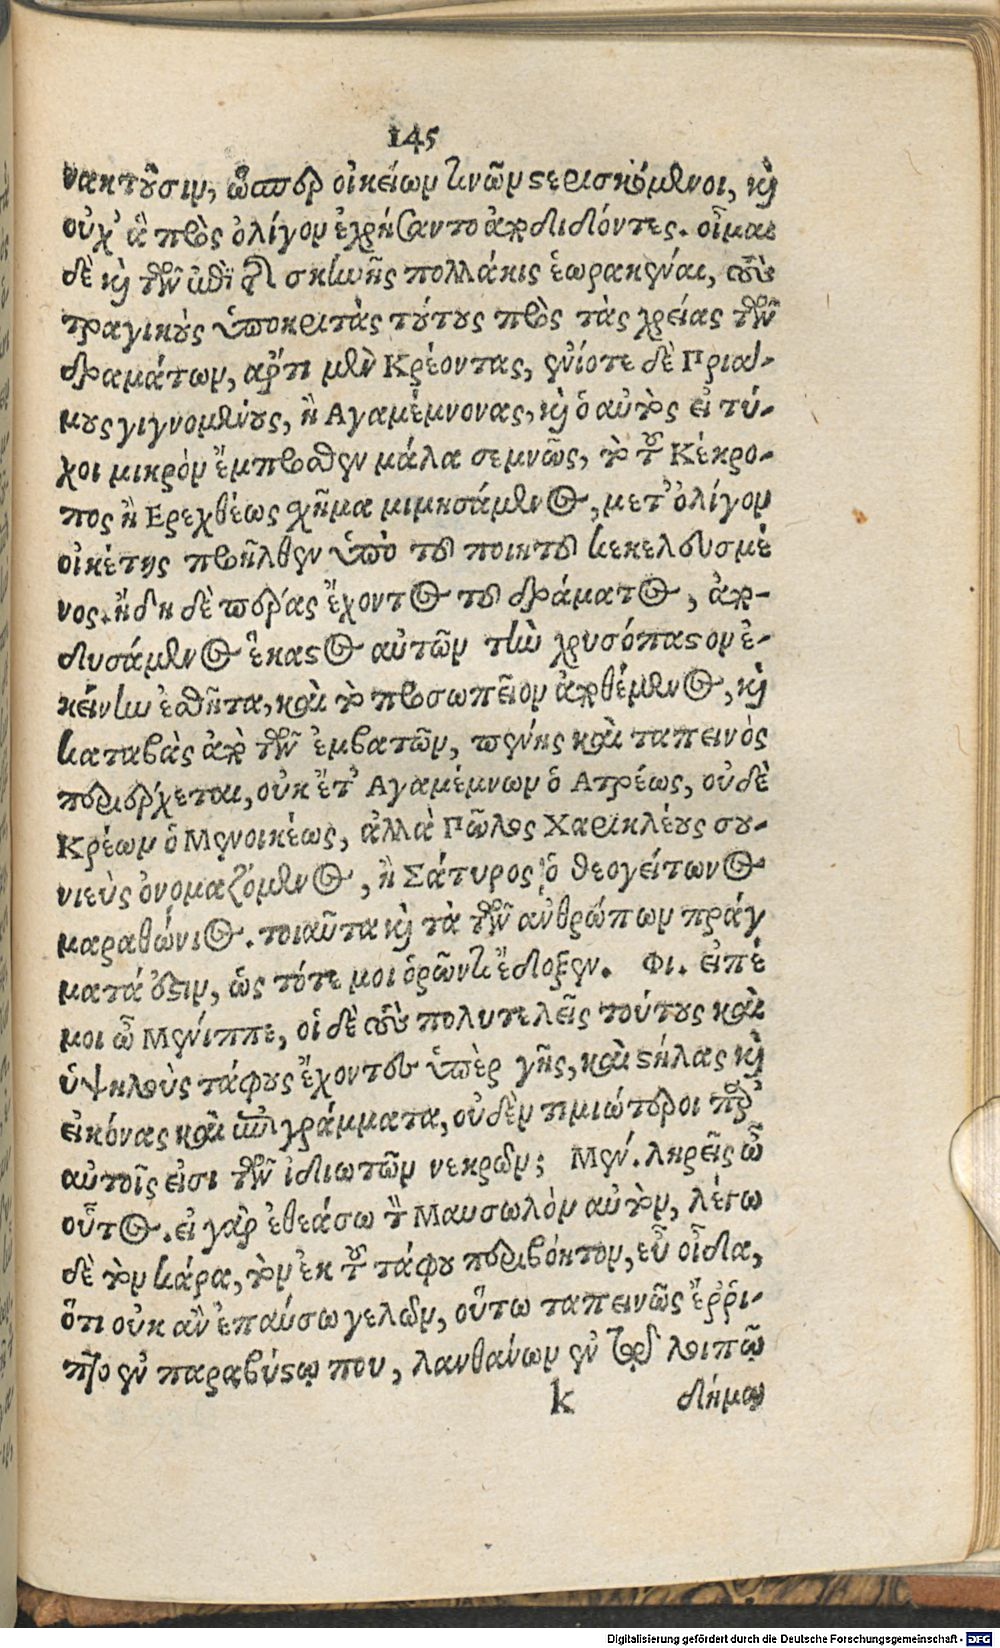 145
νακτοῦσιν, ὥσπερ οἰκείων τινῶν στερισκόμενοι, καὶ
οὐχ' ἃ πρὸς ὀλίγον ἐχρήσαντο ἀποδιδόντες. οἶμαι
δὲ καὶ τῶν ἐπὶ τῆς σκηνῆς πολλάκις ἑωρακέναι, τοὺς
τραγικοὺς ὑποκριτὰς τούτους πρὸς τὰς χρείας τῶν
δραμάτων, ἄρτι μὲν Κρέοντας, ἐνίοτε δὲ Πριά-
μους γιγνομένους, ἢ Αγαμέμνονας, καὶ ὁ αὐτὸς εἰ τύ-
χοι μικρὸν ἔμπροσθεν μάλα σεμνῶς, τὸ τοῦ Κέκρο-
πος ἢ Ερεχθέως σχῆμα μιμησάμενος, μετ' ὀλίγον
οἰκέτης προῆλθεν ὑπὸ τοῦ ποιητοῦ κεκελευσμέ
νος. ἤδη δὲ πέρας ἔχοντος τοῦ δράματος, ἀπο-
δυσάμενος ἕκαστος αὐτῶν τὴν χρυσόπαστον ἐ-
κείνην ἐσθῆτα, καὶ τὸ προσωπεῖον ἀποθέμενος, καὶ
καταβὰς ἀπὸ τῶν ἐμβατῶν, πένης καὶ ταπεινὸς
περιέρχεται, οὐκ ἔτ' Αγαμέμνων ὁ Ατρέως, οὐδὲ
Κρέων ὁ Μενοικέως, ἀλλὰ Πῶλος Χαρικλέους σου-
νιεὺς ὀνομαζόμενος, ἢ Σάτυρος ὁ θεογείτωνος
μαραθώνιος. τοιαῦτα καὶ τὰ τῶν ἀνθρώπων πράγ
ματά ἐστιν, ὡς τότε μοι ὁρῶντι ἔδοξεν. Φι. εἰπέ
μοι ὦ Μένιππε, οἱ δὲ τοὺς πολυτελεῖς τούτους καὶ
ὑψηλοὺς τάφους ἔχοντες ὑπὲρ γῆς, καὶ στήλας καὶ
εἰκόνας καὶ ἐπιγράμματα, οὐδὲν τιμιώτεροι παρ'
αὐτοῖς εἰσι τῶν ἰδιωτῶν νεκρῶν; Μεν. ληρεῖς ὦ
οὗτος. εἰ γὰρ ἐθεάσω τὸν Μαυσωλὸν αὐτὸν, λέγω
δὲ τὸν κάρα, τὸν ἐκ τοῦ τάφου περιβόητον, εὖ οἶδα,
ὅτι οὐκ ἂν ἐπαύσω γελῶν, οὕτω ταπεινῶς ἔρρι-
πτο ἐν παραβύστῳ που, λανθάνων ἐν τῷ λοιπῷ
k δήμῳ
Digitalisierung gefördert durch die Deutsche Forschungsgemeinschaft - DFG